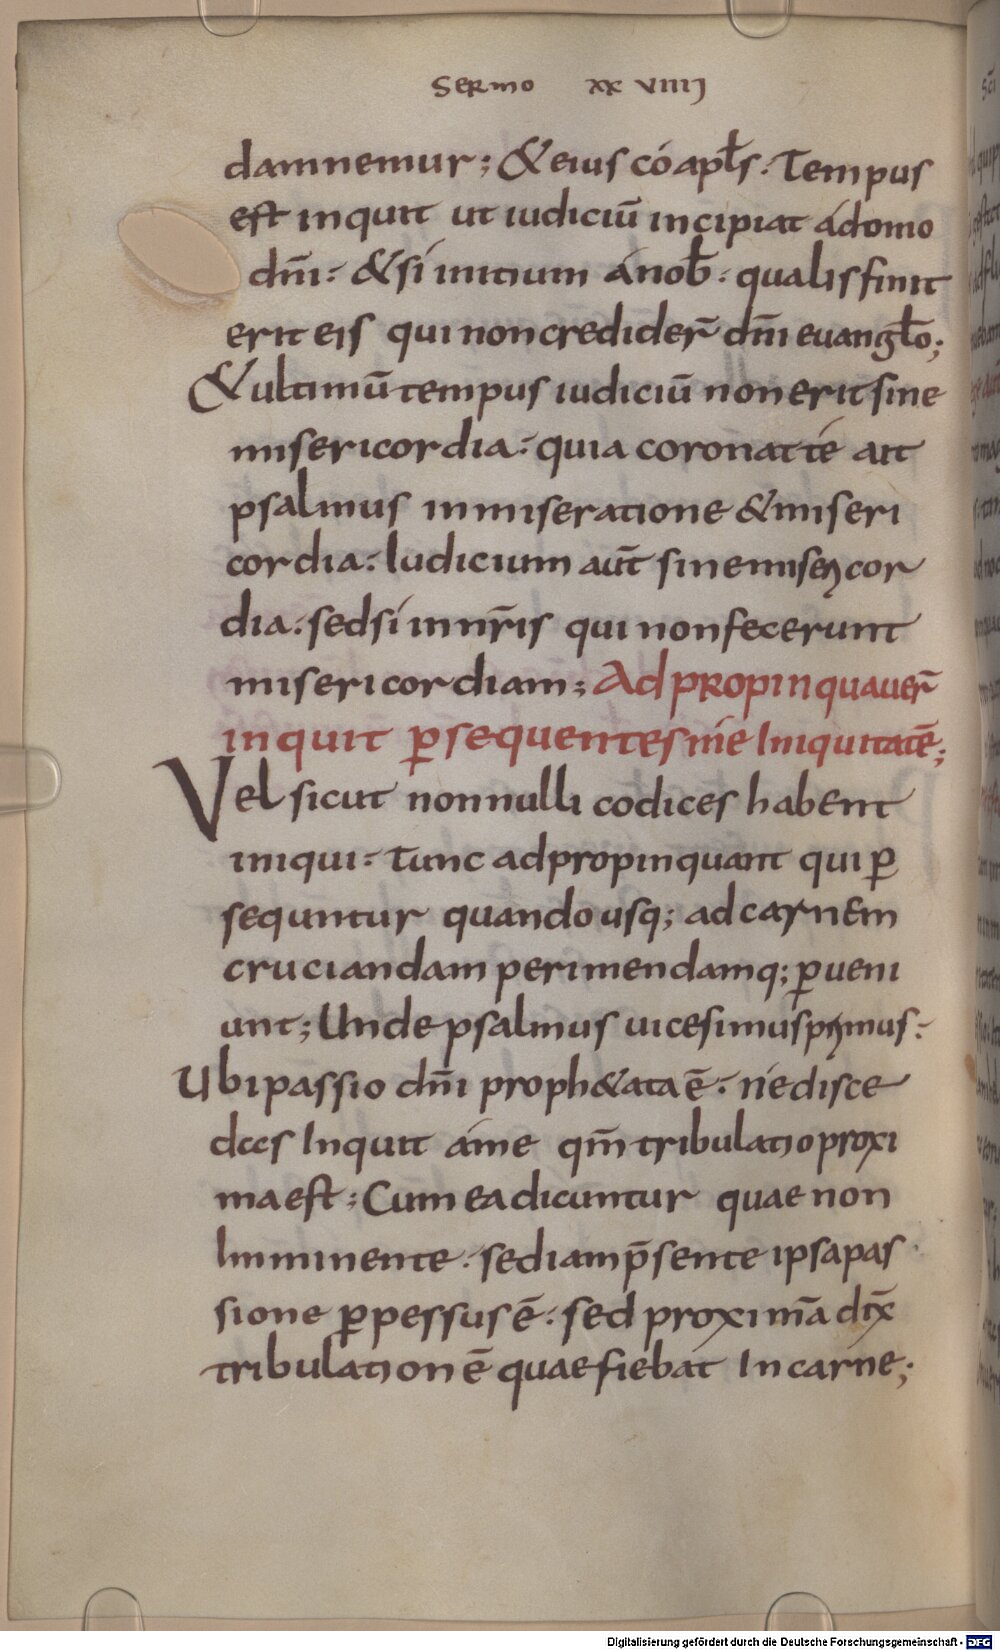 Sermo xxviiij
damnemur; & eius coapƚs. Tempus
est inquit ut iudiciū incipiat ádomo
dn̄i. & si initium ánob̄. qualis finit
erit eis qui non credider̄ dn̄i euangƚo;
& ultimū tempus iudiciū non erit sine
misericordia. quia coronat té ait
psalmus inmiseratione & miseri
cordia. Iudicium aut̄ sine misericor
dia. sed si innr̄is qui non fecerunt
misericordiam; Adpropinquauer̄
inquit ꝑsequentes me Iniquitatē;
Vel sicut nonnulli codices habent
iniqui. tunc adpropinquant qui ꝑ
sequntur quando usq; ad carnem
cruciandam perimendamq; ꝑueni
unt; Unde psalmus uicesimus primus.
Ubi passio dn̄i proph&ata ē. ne disce
dees Inquit áme qm̄ tribulatio proxi
ma est; Cum ea dicuntur quae non
Imminente. sed iam p̄sente ipsa pas
sione ꝑpessus ē. sed proximā dix̄
tribulationē quae fiebat In carne;
Digitalisierung gefördert durch die Deutsche Forschungsgemeinschaft - DFG